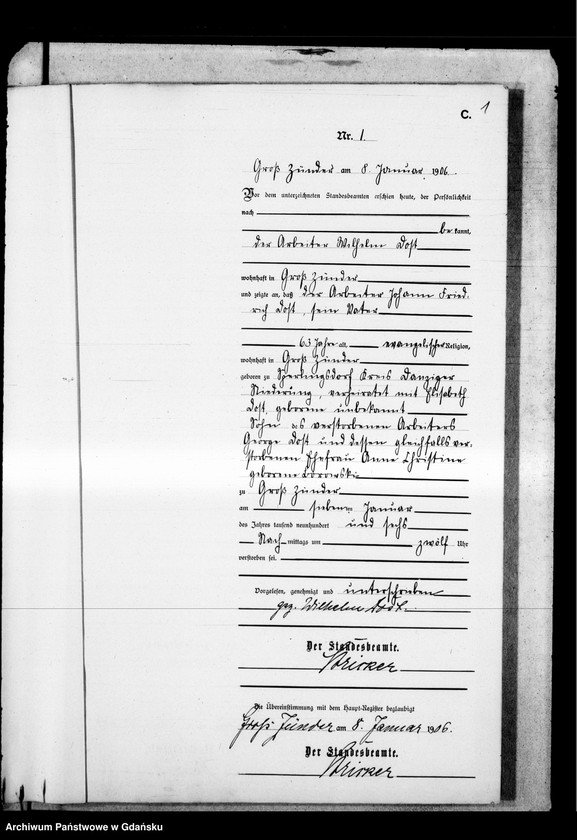 C. 1
Nr. 1.
Groß Zünder am 8. Januar 1906.
Vor dem unterzeichneten Standesbeamten erschien heute, der Persönlichkeit
nach
be kannt,
der Arbeiter Wilhelm Dost
wohnhaft in Groß Zünder
und zeigte an, daß der Arbeiter Johann Fried-
rich Dost, sein Vater
63 Jahre alt, evangelischer Religion,
wohnhaft in Groß Zünder
geboren zu Sperlingsdorf Kreis Danziger
Niederung, verheiratet mit Elisabeth
Dost, geborene unbekannt
Sohn des verstorbenen Arbeiters
George Dost und dessen gleichfalls ver-
storbenen Ehefrau Anne Christine
geborene
zu Groß Zünder
am sieben ten Januar
des Jahres tausend neunhundert und sechs
Nach mittags um zwölf Uhr
verstorben sei.
Vorgelesen, genehmigt und unterschrieben
gez. Wilhelm Dost.
Der Standesbeamte.
Die Übereinstimmung mit dem Haupt-Register beglaubigt
Groß Zünder am 8. Januar 1906.
Der Standesbeamte.
Archiwum Państwowe w Gdańsku